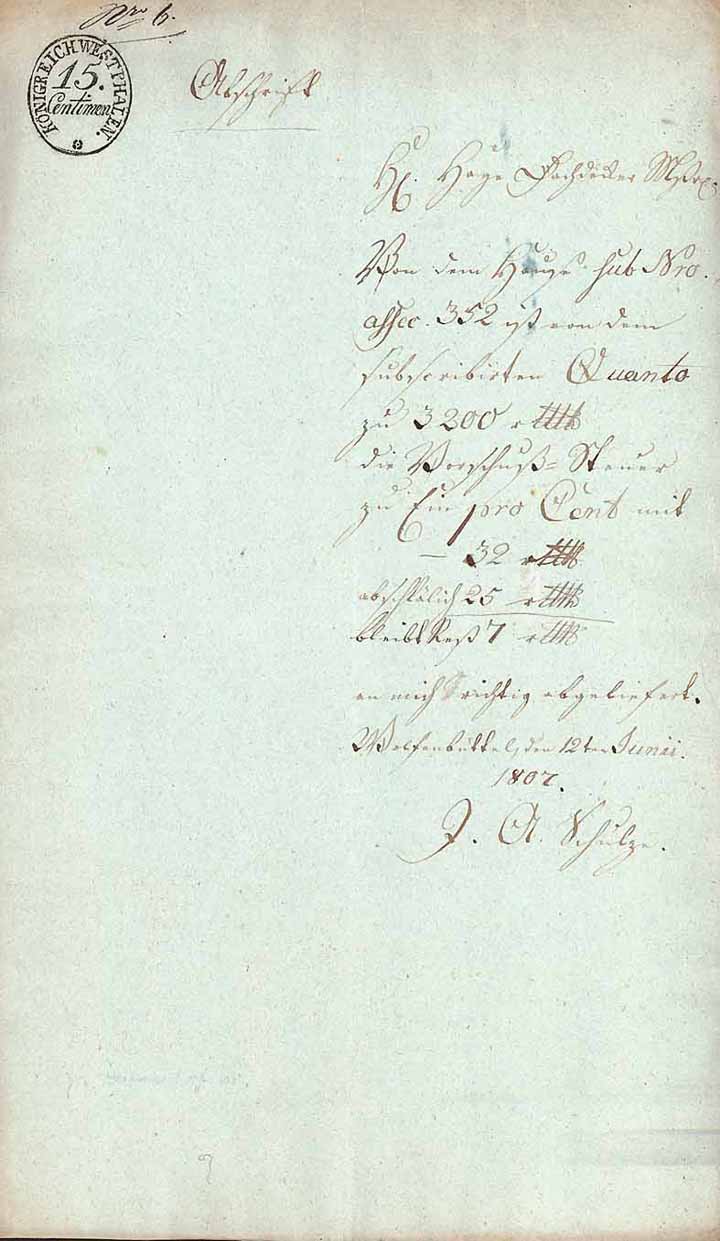 Nro 6.
KÖNIGREICH WESTPHALEN.
15.
Centimen
Abschrift
H. Hage Dachdecker
Von dem Hause sub Nro.
assec. 352 ist von dem
subscribirten Quanto
zu 3200 rthlr
die Vorschuß=Steuer
zu Ein pro Cent mit
— 32 rthlr
abschlälich 25 rthlr
bleibt Rest 7 rthlr
an mich richtig abgeliefert.
Wolfenbüttel, den 12ten Junii.
1807.
J. A. Schulze.